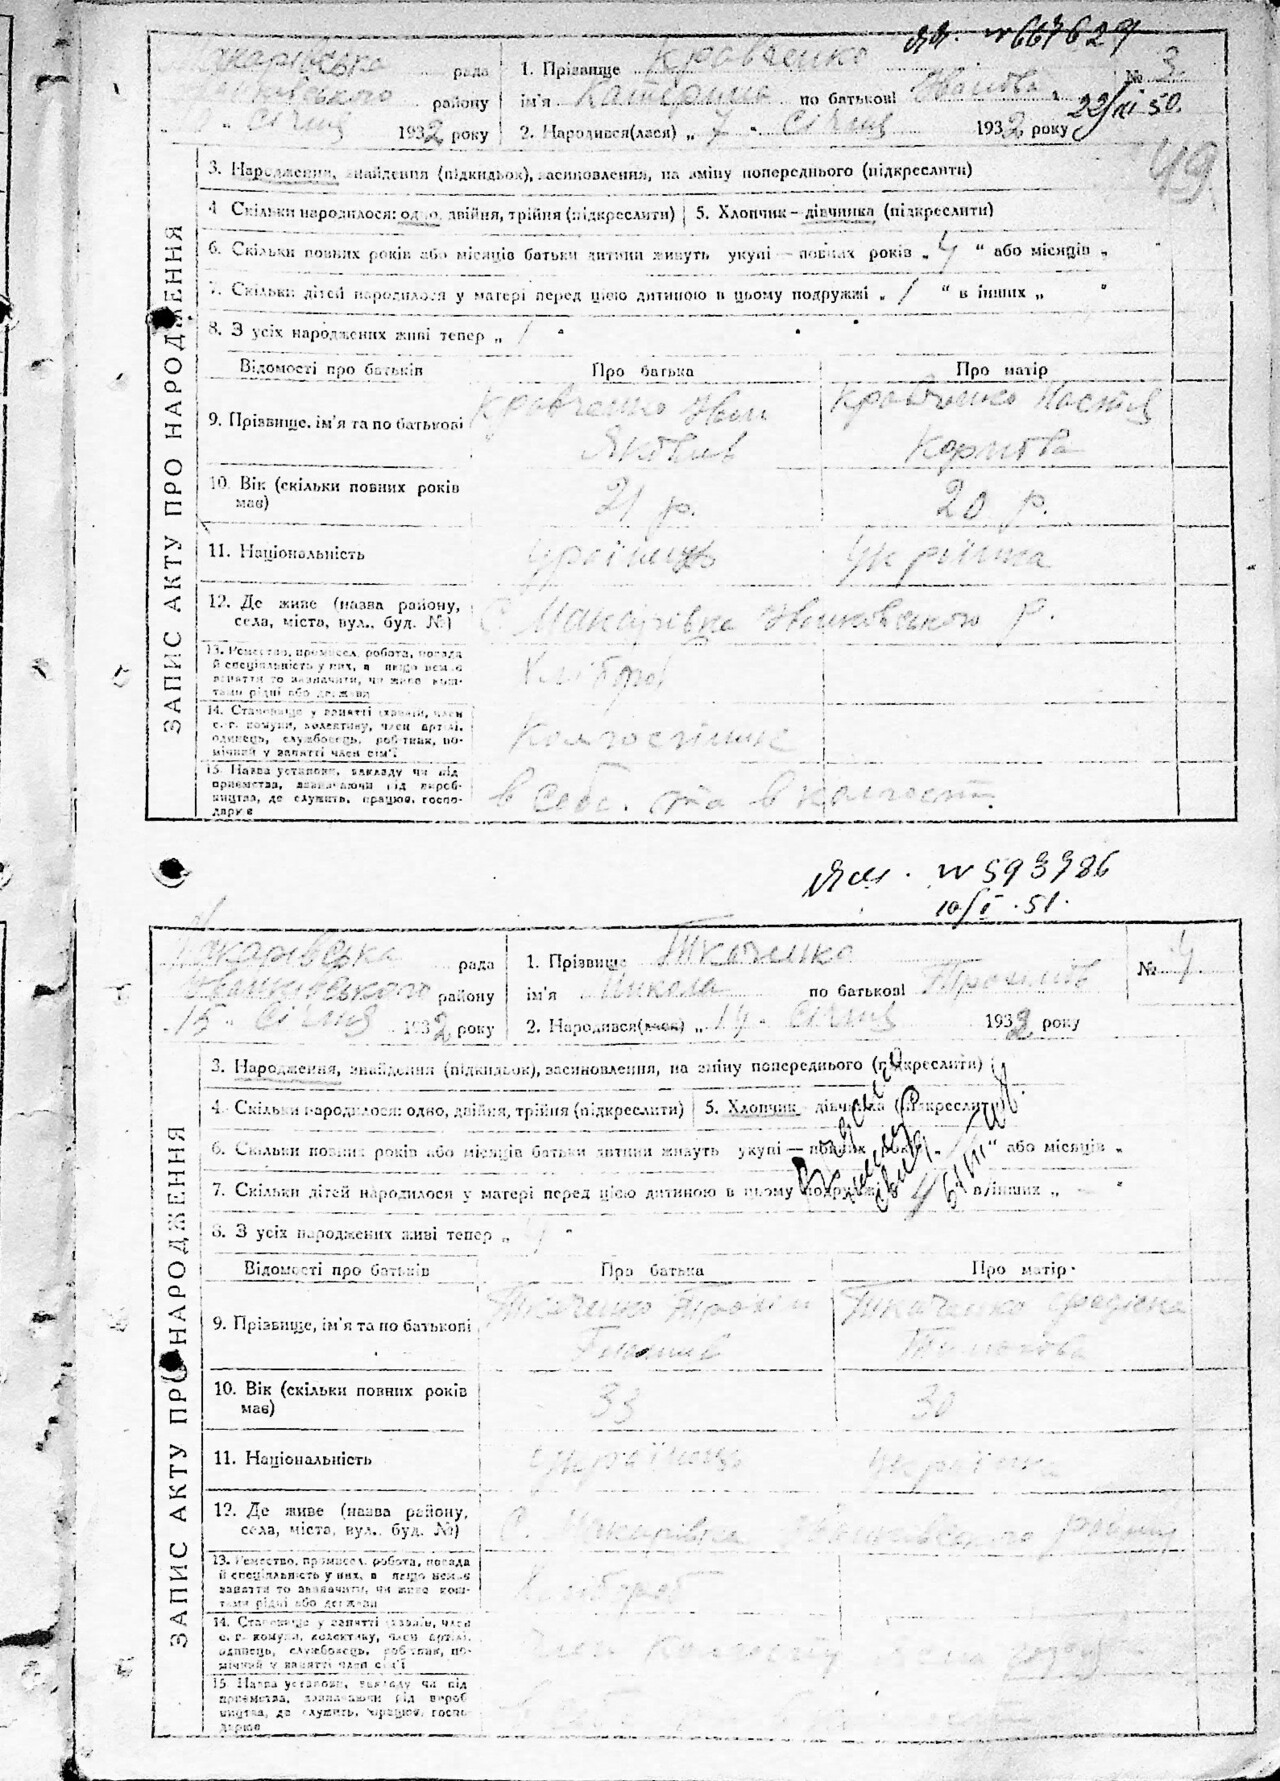 № 667629
Макарівська рада 1. Прізвище Кравченко № 3
району ім'я Катерина по батькові Іванівна 22/XI 50.
Січня 1932 року 2. Народився(лася) „ 7 " Січня 1932 року
49
ЗАПИС АКТУ ПРО НАРОДЖЕННЯ
3. Народження, знайдення (підкидьок), засиновлення, на зміну попереднього (підкреслити)
4. Скільки народилося: одно, двійня, трійня (підкреслити) 5. Хлопчик – дівчинка (підкреслити)
6. Скільки повних років або місяців батьки дитини живуть укупі – повних років „ 4 " або місяців „ "
7. Скільки дітей народилося у матері перед цією дитиною в цьому подружжі „ 1 " в інших „ "
8. З усіх народжених живі тепер „ 1 "
Відомості про батьків Про батька Про матір
9. Прізвище, ім'я та по батькові Кравченко Іван Кравченко Настя
Яковлів Карпова
10. Вік (скільки повних років має) 21 р. 20 р.
11. Національність
12. Де живе (назва району, села, міста, вул., буд. №) С. Макарівка Іваньковського р.
13. Ремество, промисел, робота, посада й спеціяльність у них, а якщо немає заняття то зазначити, чи живе коштами рідні або держави Хлібороб
14. Становище у занятті (хазяїн, член с.-г. комуни, колективу, член артілі, одинець, службовець, робітник, помічний у занятті член сім'ї Колгоспник
15. Назва установи, закладу чи підприємства, зазначаючи рід виробництва, де служить, працює, господарює в себе та в колгоспі
№ 593786
10/I. 51.
Макарівська рада 1. Прізвище Ткаченко № 4
району ім'я Микола по батькові Трохимів
„ 15 " Січня 1932 року 2. Народився(лася) „ 14 " Січня 1932 року
ЗАПИС АКТУ ПРО НАРОДЖЕННЯ
3. Народження, знайдення (підкидьок), засиновлення, на зміну попереднього (підкреслити)
4. Скільки народилося: одно, двійня, трійня (підкреслити) 5. Хлопчик – дівчинка (підкреслити)
6. Скільки повних років або місяців батьки дитини живуть укупі – повних років " або місяців „
7. Скільки дітей народилося у матері перед цією дитиною в цьому подружжі „ 4 " в інших „ "
8. З усіх народжених живі тепер „ 4 "
Відомості про батьків Про батька Про матір
9. Прізвище, ім'я та по батькові Ткаченко Трохим Ткаченко
10. Вік (скільки повних років має) 33 30
11. Національність Українець Українка
12. Де живе (назва району, села, міста, вул., буд. №) С. Макарівка району
13. Ремество, промисел, робота, посада й спеціяльність у них, а якщо немає заняття то зазначити, чи живе коштами рідні або держави Хлібороб
14. Становище у занятті (хазяїн, член с.-г. комуни, колективу, член артілі, одинець, службовець, робітник, помічний у занятті член сім'ї Член
15. Назва установи, закладу чи підприємства, зазначаючи рід виробництва, де служить, працює, господарює